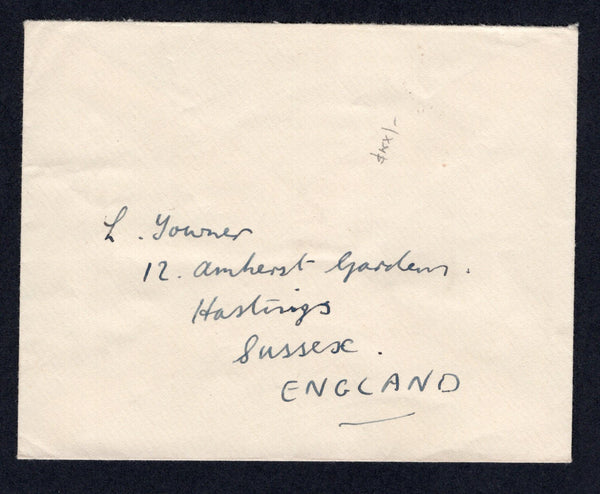 L. Towner
12. Amherst Gardens.
Hastings
Sussex.
ENGLAND